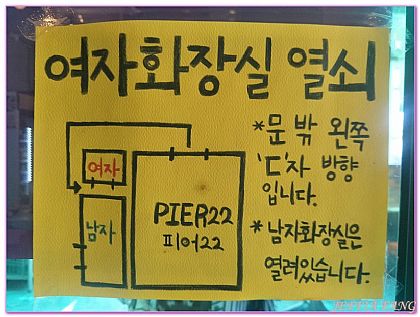 여자화장실 열쇠
*문 밖 왼쪽
'ㄷ'자 방향
입니다.
여자
남자
PIER22
피어22
*남자화장실은
열려있습니다.